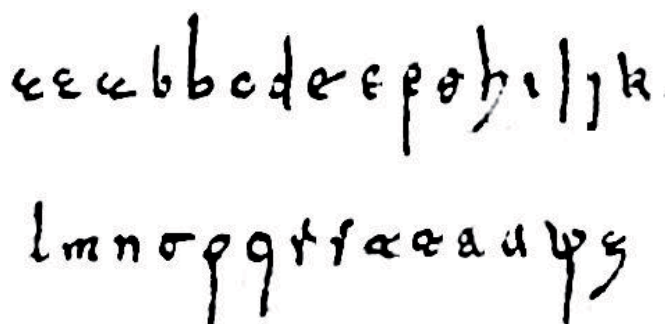 a a a b b c d e e f g h i l j k
l m n o p q r s t t a u y z